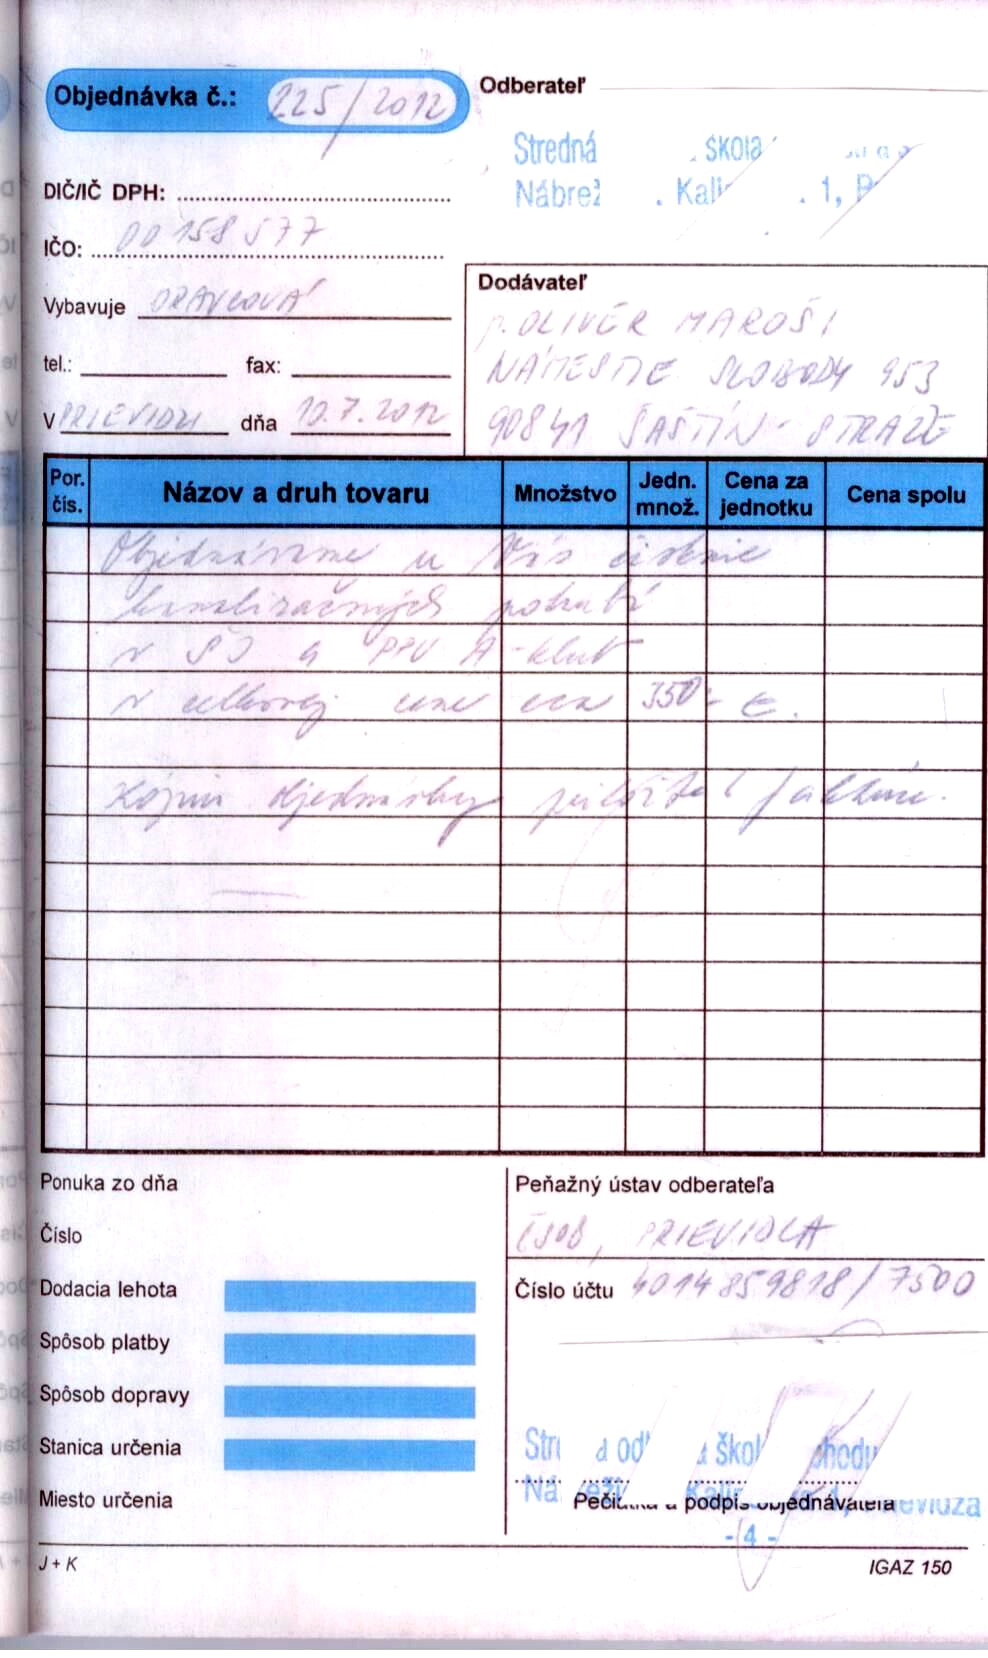 Objednávka č.: 225/2012
Odberateľ
Stredná škola
Nábrež . Kali . 1, P
DIČ/IČ DPH:
IČO: 00158577
Vybavuje ORAVCOVÁ
tel.: fax:
V PRIEVIDZI dňa 10.7.2012
Dodávateľ
p. OLIVÉR MAROŠI
NÁMESTIE SLOBODY 953
90841 ŠAŠTÍN - STRÁŽE
Por. čís. Názov a druh tovaru Množstvo Jedn. množ. Cena za jednotku Cena spolu
Objednávame u Vás čistenie
kanalizačných potrubí
v ŠJ a PPV A-klub
v celkovej cene cca 350,- €.
Kópiu objednávky priložte k faktúre.
Ponuka zo dňa
Číslo
Dodacia lehota
Spôsob platby
Spôsob dopravy
Stanica určenia
Miesto určenia
Peňažný ústav odberateľa
ČSOB, PRIEVIDZA
Číslo účtu 4014859818/7500
od škol chodu
Ná Kalin 1, rievidza
Pečiatka a podpis objednávateľa
- 4 -
J + K
IGAZ 150